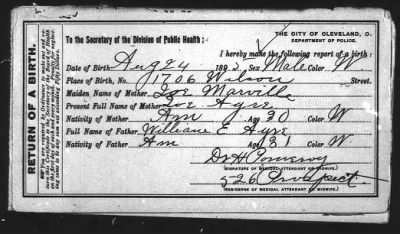 THE CITY OF CLEVELAND, O.
DEPARTMENT OF POLICE.
To the Secretary of the Division of Public Health:
I hereby make the following report of a birth:
Date of Birth, Aug 24 189 Sex Male Color W
Place of Birth, No. 1706 Wilson Street.
Maiden Name of Mother Zoe Marville
Present Full Name of Mother Zoe Ayre
Nativity of Mother Am Age 30 Color W
Full Name of Father William E Ayre
Nativity of Father Am Age 31 Color W
Dr H Pomeroy
SIGNATURE OF MEDICAL ATTENDANT OR MIDWIFE.
526 Prospect
RESIDENCE OF MEDICAL ATTENDANT OR MIDWIFE.
RETURN OF A BIRTH.